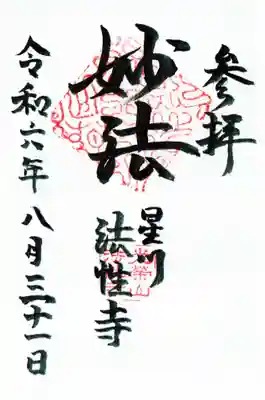 参拝
妙法
星川
法性寺
令和六年
八月三十一日